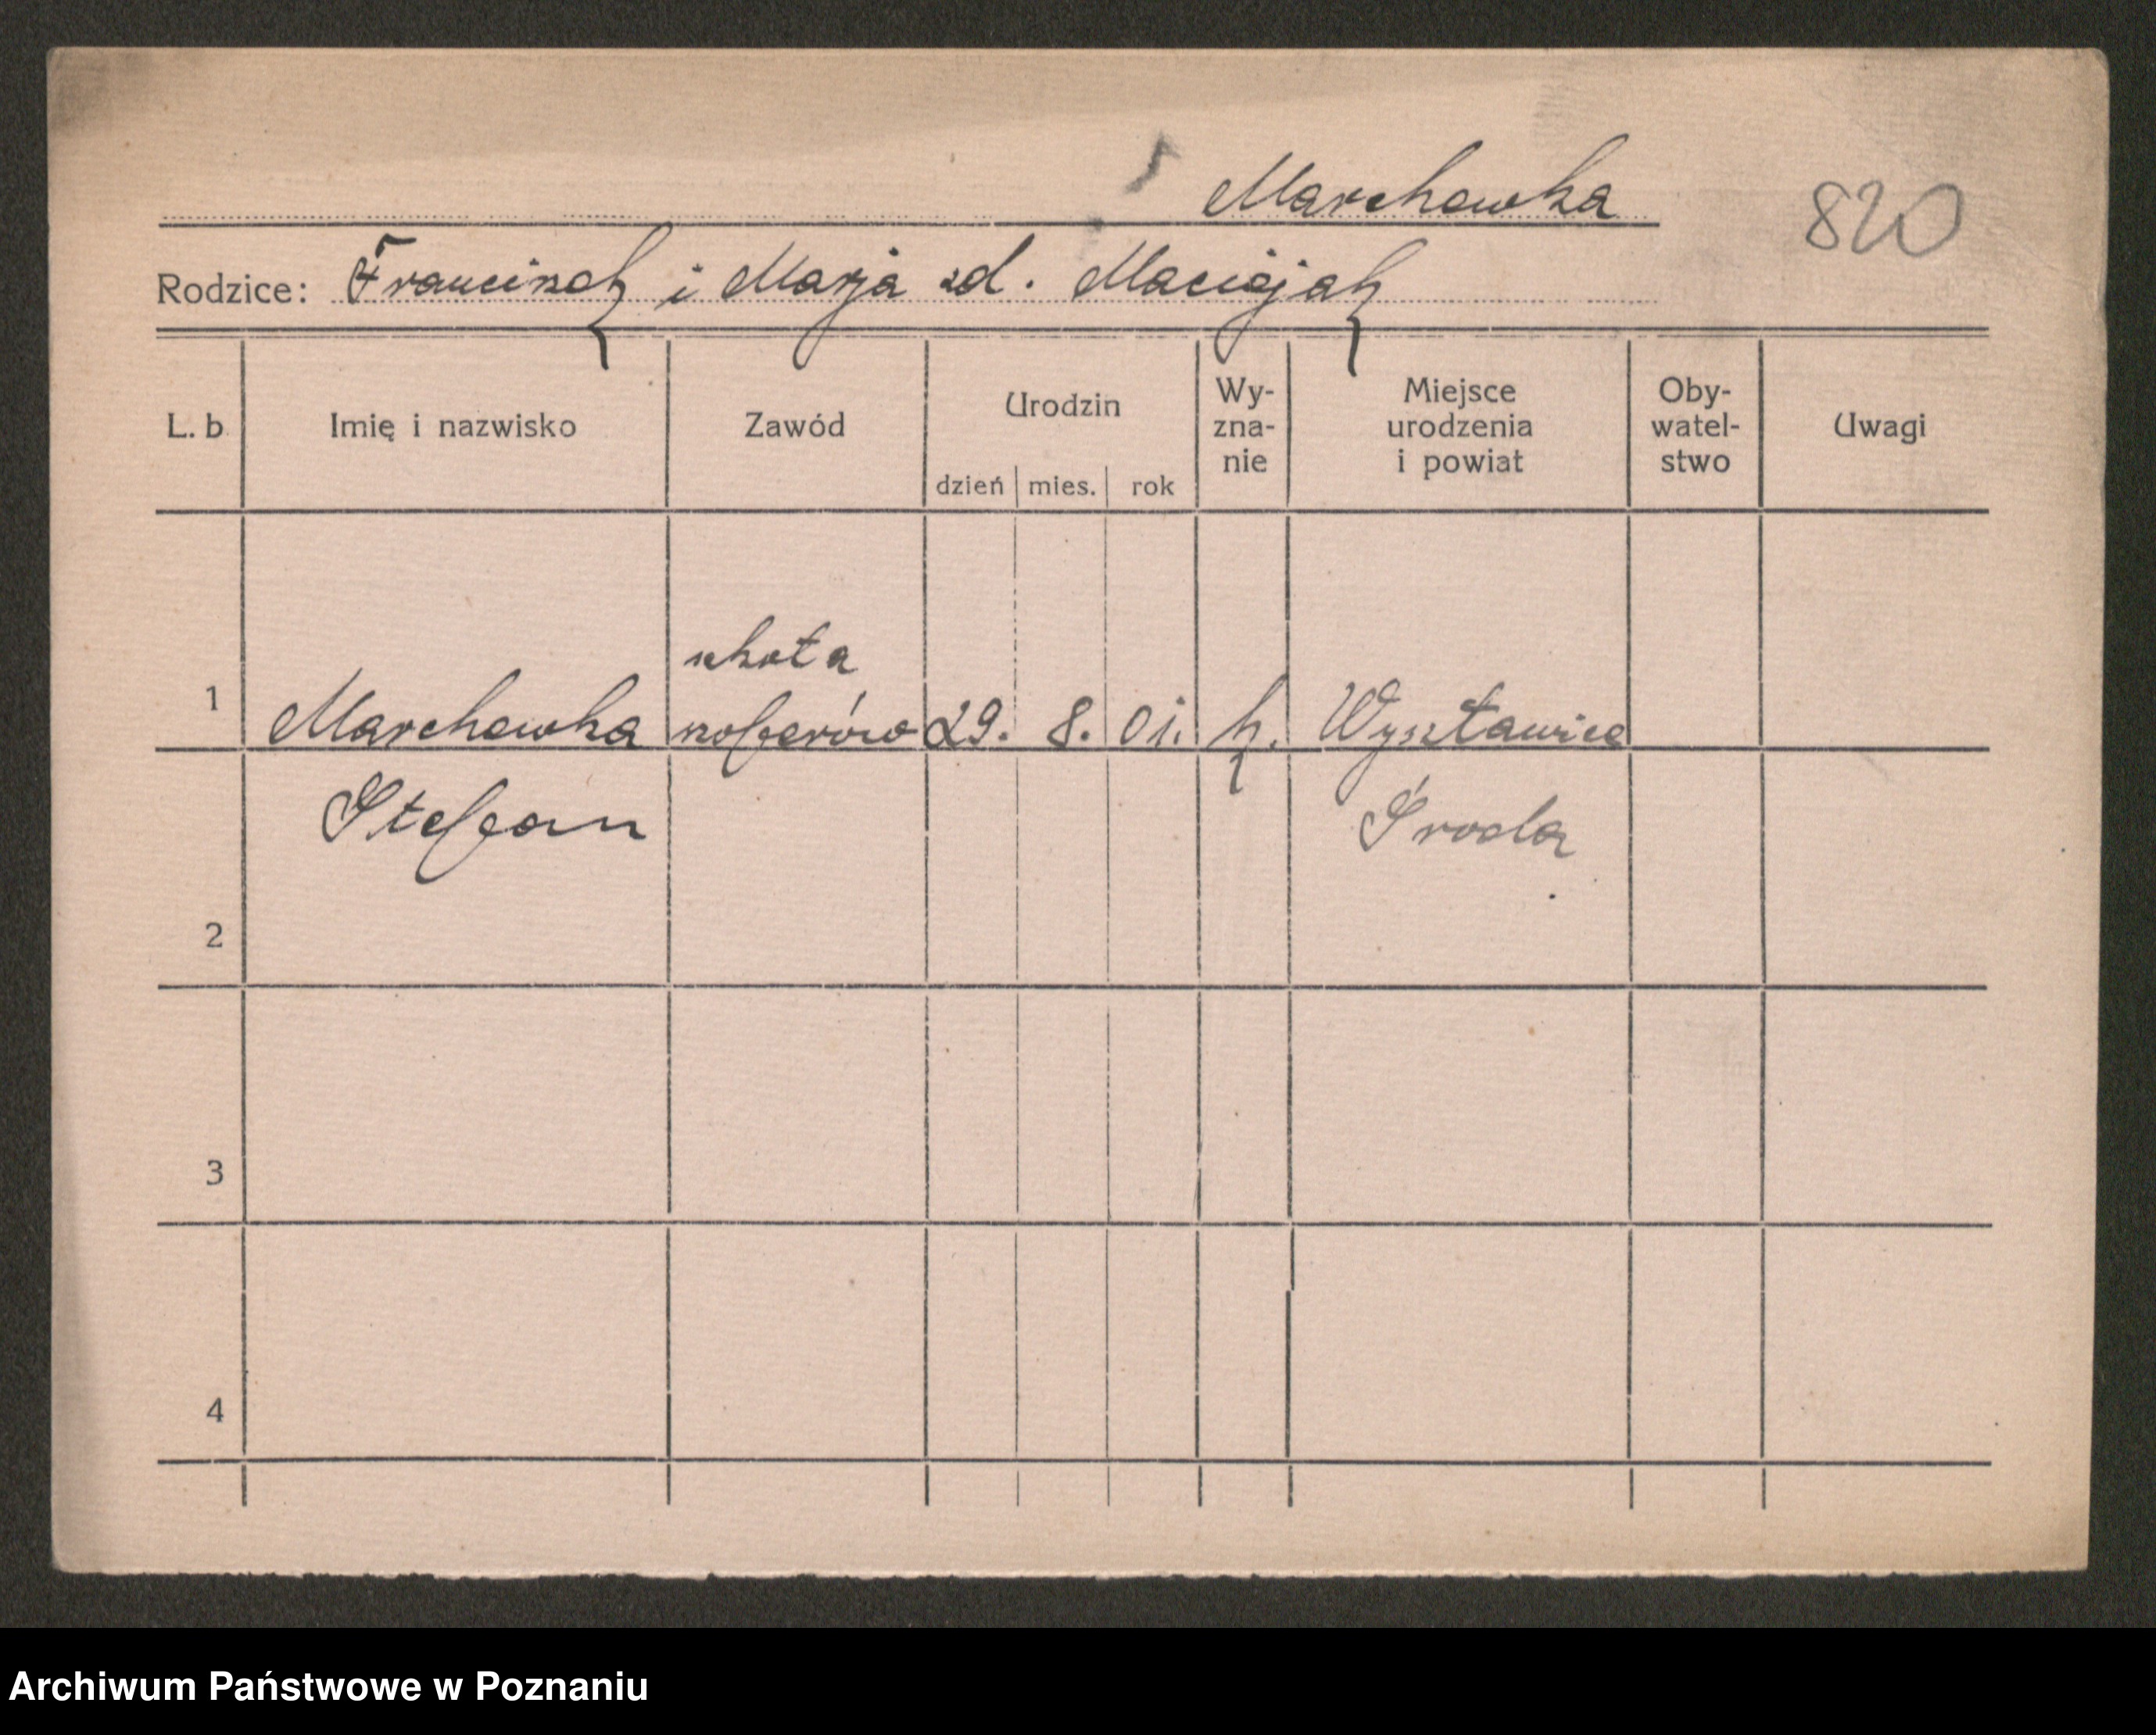 Marchewka
820
Rodzice: Franciszek i Marja zd. Maciejak
L. b. Imię i nazwisko Zawód Urodzin dzień mies. rok Wy-zna-nie Miejsce urodzenia i powiat Oby-watel-stwo Uwagi
szkoła
1 Marchewka szoferów 29. 8. 01. k. Wysławice
Stefan Środa
2
3
4
Archiwum Państwowe w Poznaniu